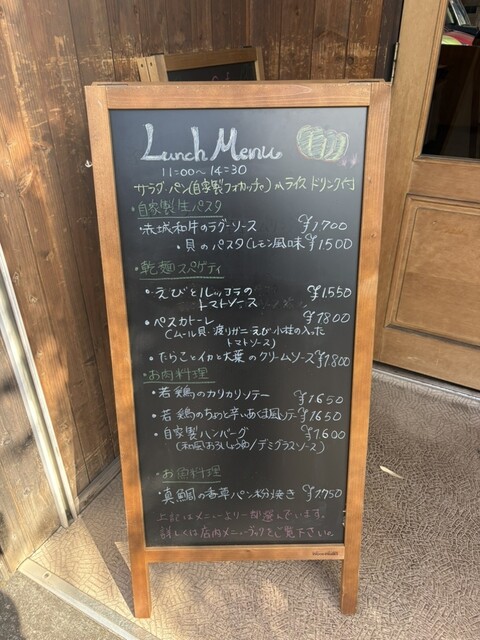 Lunch Menu
11:00~14:30
サラダ パン(自家製フォカッチャ)orライス ドリンク付
・自家製生パスタ
・赤城和牛のラグーソース ¥1700
・貝のパスタ(レモン風味 ¥1500
・乾麺スパゲティ
・えびとルッコラの トマトソース ¥1550
・ペスカトーレ ¥1800
(ムール貝・渡りガニ・えび・小柱の入った
トマトソース)
・たらことイカと大葉のクリームソース ¥1800
・お肉料理
・若鶏のカリカリソテー ¥1650
・若鶏のちょっと辛いあくま風ソテー ¥1650
・自家製ハンバーグ ¥1600
(和風おろししょうゆ/デミグラスソース)
・お魚料理
・真鯛の香草パン粉焼き ¥1750
上記はメニューより一部選んでいます。
詳しくは店内メニューブックをご覧下さい。